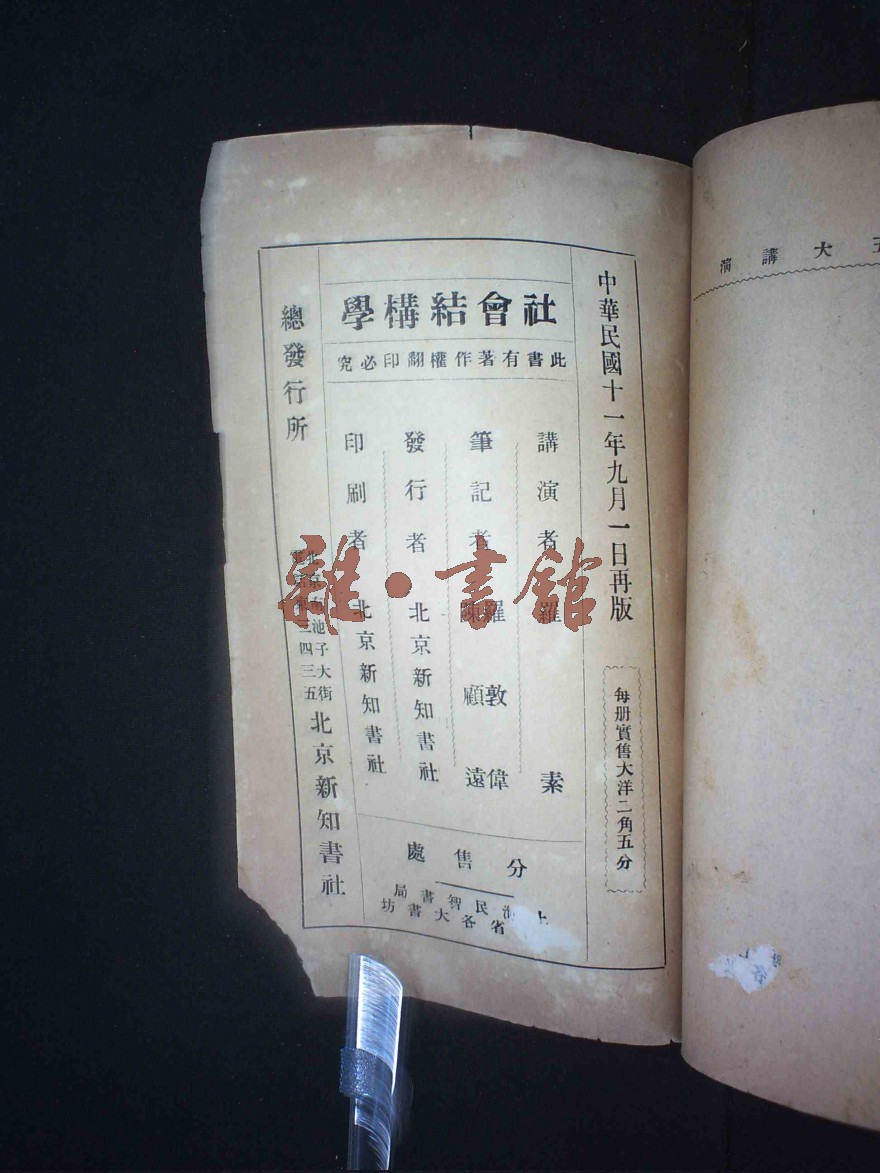 中華民國十一年九月一日再版
每册實售大洋二角五分
社會結構學
此書有著作權翻印必究
講演者 羅素
筆記者 羅敦偉 陳顧遠
發行者 北京新知書社
印刷者 北京新知書社
分售處
上海民智書局
省各大書坊
總發行所
北京南池子大街
三四三五
北京新知書社
五大講演
雜·書館